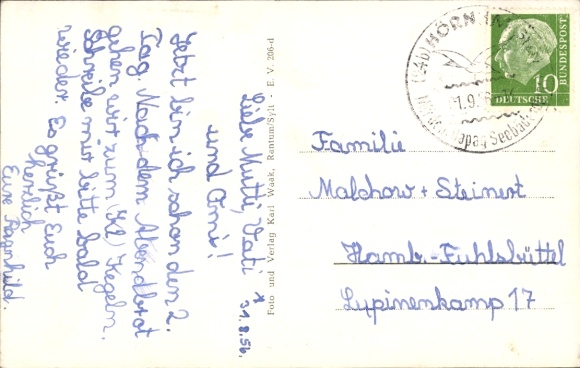 31.8.56.
Liebe Mutti, Vati
und Omi!
Jetzt bin ich schon den 2.
Tag Nach dem Abendbrot
gehen wir zum (Kl) Kegeln.
Schreibe mir bitte bald
wieder. Es grüßt Euch
herzlich
Eure Ragnhild.
Foto und Verlag Karl Waak, Rantum/Sylt - E. V. 206-d
(24b) HÖRNUM
1.9.
Seebad
DEUTSCHE BUNDESPOST
10
Familie
Malchow + Steinert
Hamb.-Fuhlsbüttel
Lypinenkamp 17